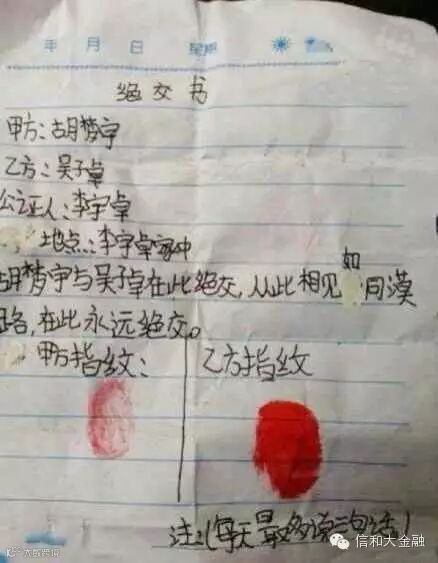 年 月 日 星期
绝交书
甲方：胡梦宇
乙方：吴子卓
公证人：李宇卓
地点：李宇卓家中
胡梦宇与吴子卓在此绝交，从此相见如同漠
路，在此永远绝交。
甲方指纹： 乙方指纹
注：（每天最多说三句话）
信和大金融
大数跨境